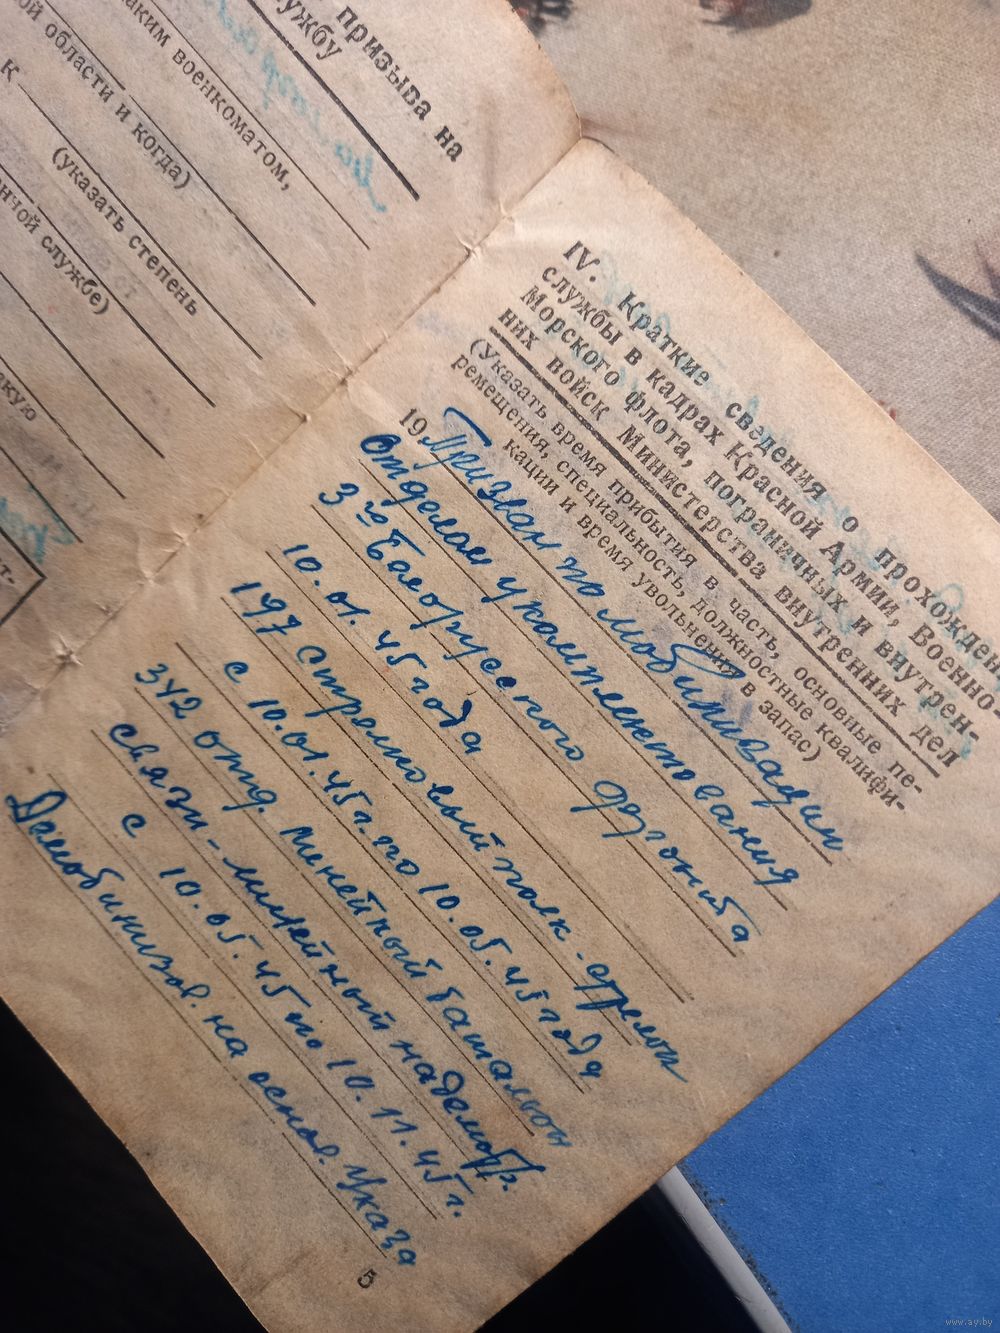 призыва на
службу
каким военкоматом,
ой области и когда)
К
(указать степень
анчой службе)
акую
IV. Краткие сведения о прохожден
службы в кадрах Красной Армии, Военно-
Морского флота, пограничных и внутрен-
них войск Министерства внутренних дел
(Указать время прибытия в часть, основные пе-
ремещения, специальность, должностные квалифи-
кации и время увольнения в запас)
19 Призван по мобилизации
Отделом укомплектования
3го Белорусского фронта
10.01.45 года
197 стрелковый полк - стрелок
с 10.01.45 г. по 10.05.45 года
342 отд. Линейный батальон
связи - линейный надсмотр.
с 10.05.45 по 10.11.45 г.
Демобилизов. на основ. Указа
5
www.ay.by